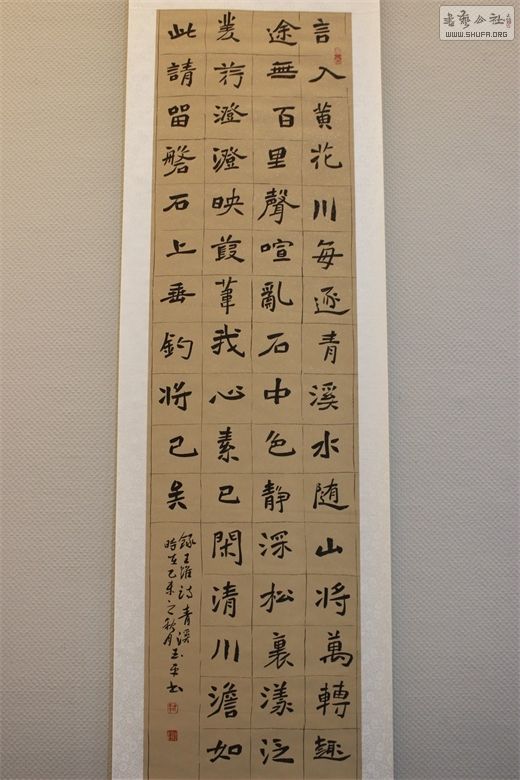 言入黄花川每逐青溪水随山將萬轉趣
途無百里聲喧亂石中色靜深松裏漾泛
菱荇澄澄映葭葦我心素已閑清川澹如
此請留盤石上垂釣將已矣
録王維詩青溪
時在乙未之秋月玉平书
書藝公社
WWW.SHUFA.ORG